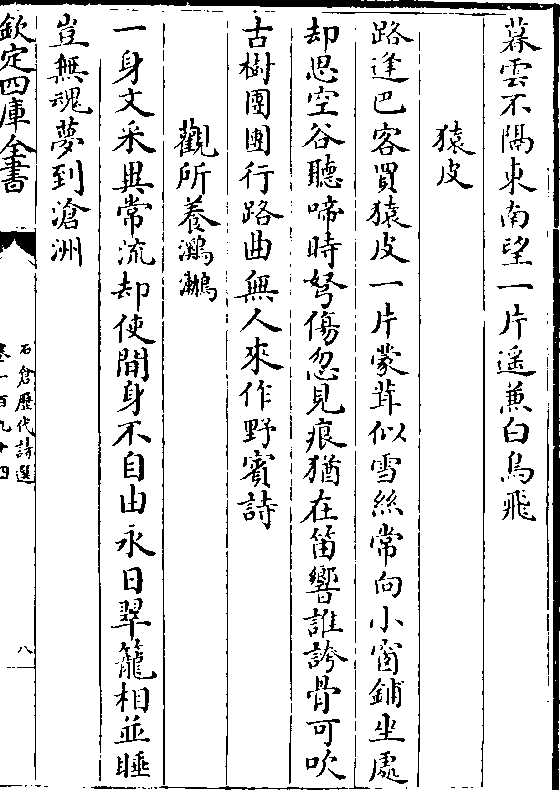 暮雲不隔東南望一片遥兼白鳥飛
猿皮
路逢巴客買猿皮一片蒙茸似雪絲常向小窗鋪坐處
却思空谷聽啼時弩傷忽見痕猶在笛響誰誇骨可吹
古樹團團行路曲無人來作野賓詩
觀所養鸂鶒
一身文采異常流却使閒身不自由永日翠籠相並睡
豈無魂夢到滄洲
欽定四庫全書
石倉歷代詩選
卷一百九十四
八